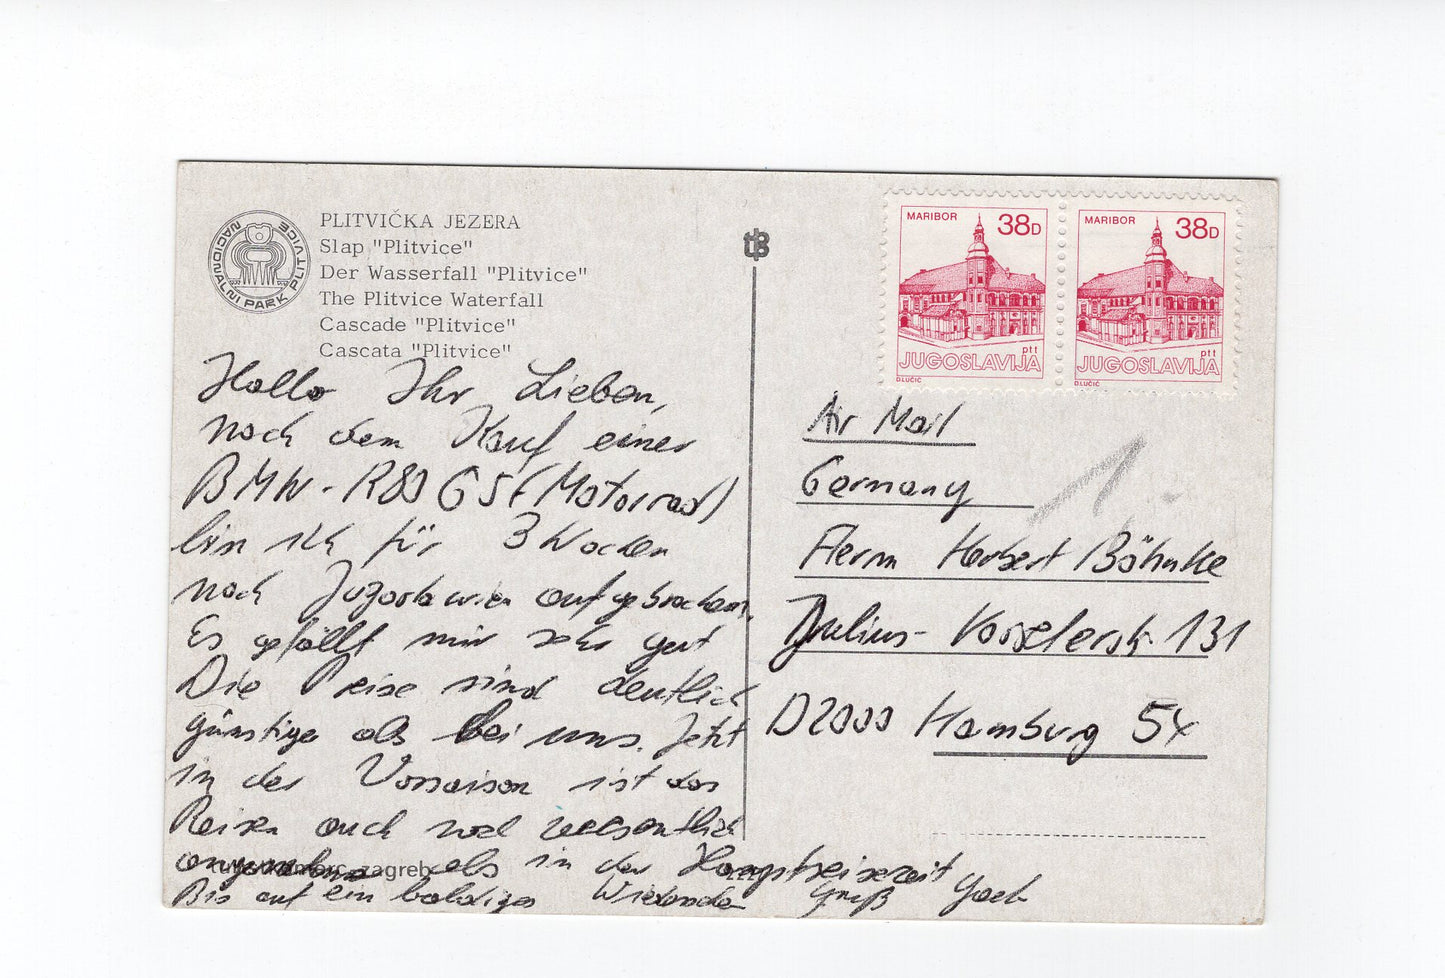 NACIONALNI PARK PLITVICE
PLITVIČKA JEZERA
Slap "Plitvice"
Der Wasserfall "Plitvice"
The Plitvice Waterfall
Cascade "Plitvice"
Cascata "Plitvice"
Hallo Ihr Lieben,
nach dem Kauf einer
BMW-R80 GS (Motorrad)
bin ich für 3 Wochen
nach Jugoslawien aufgebrochen.
Es gefällt mir sehr gut
Die Preise sind deutlich
günstiger als bei uns. Jetzt
in der Vorsaison ist das
Reisen auch wesentlich
angenehmer als in der Hauptreisezeit
Bis auf ein baldiges Gruß
zagreb
MARIBOR 38D
ptt
JUGOSLAVIJA
D.LUČIĆ
MARIBOR 38D
ptt
JUGOSLAVIJA
D.LUČIĆ
Air Mail
Germany
Herrn Herbert Böhnke
Julius-Vosselerstr. 131
D2000 Hamburg 54